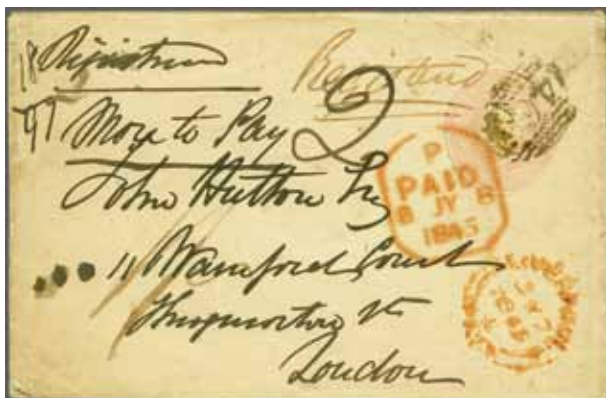 18 Registered Registered
97 More to Pay 2
John Hutton Esq
P
PAID
8 JY 8
1845
11 Warnford Court
Throgmorton St
London